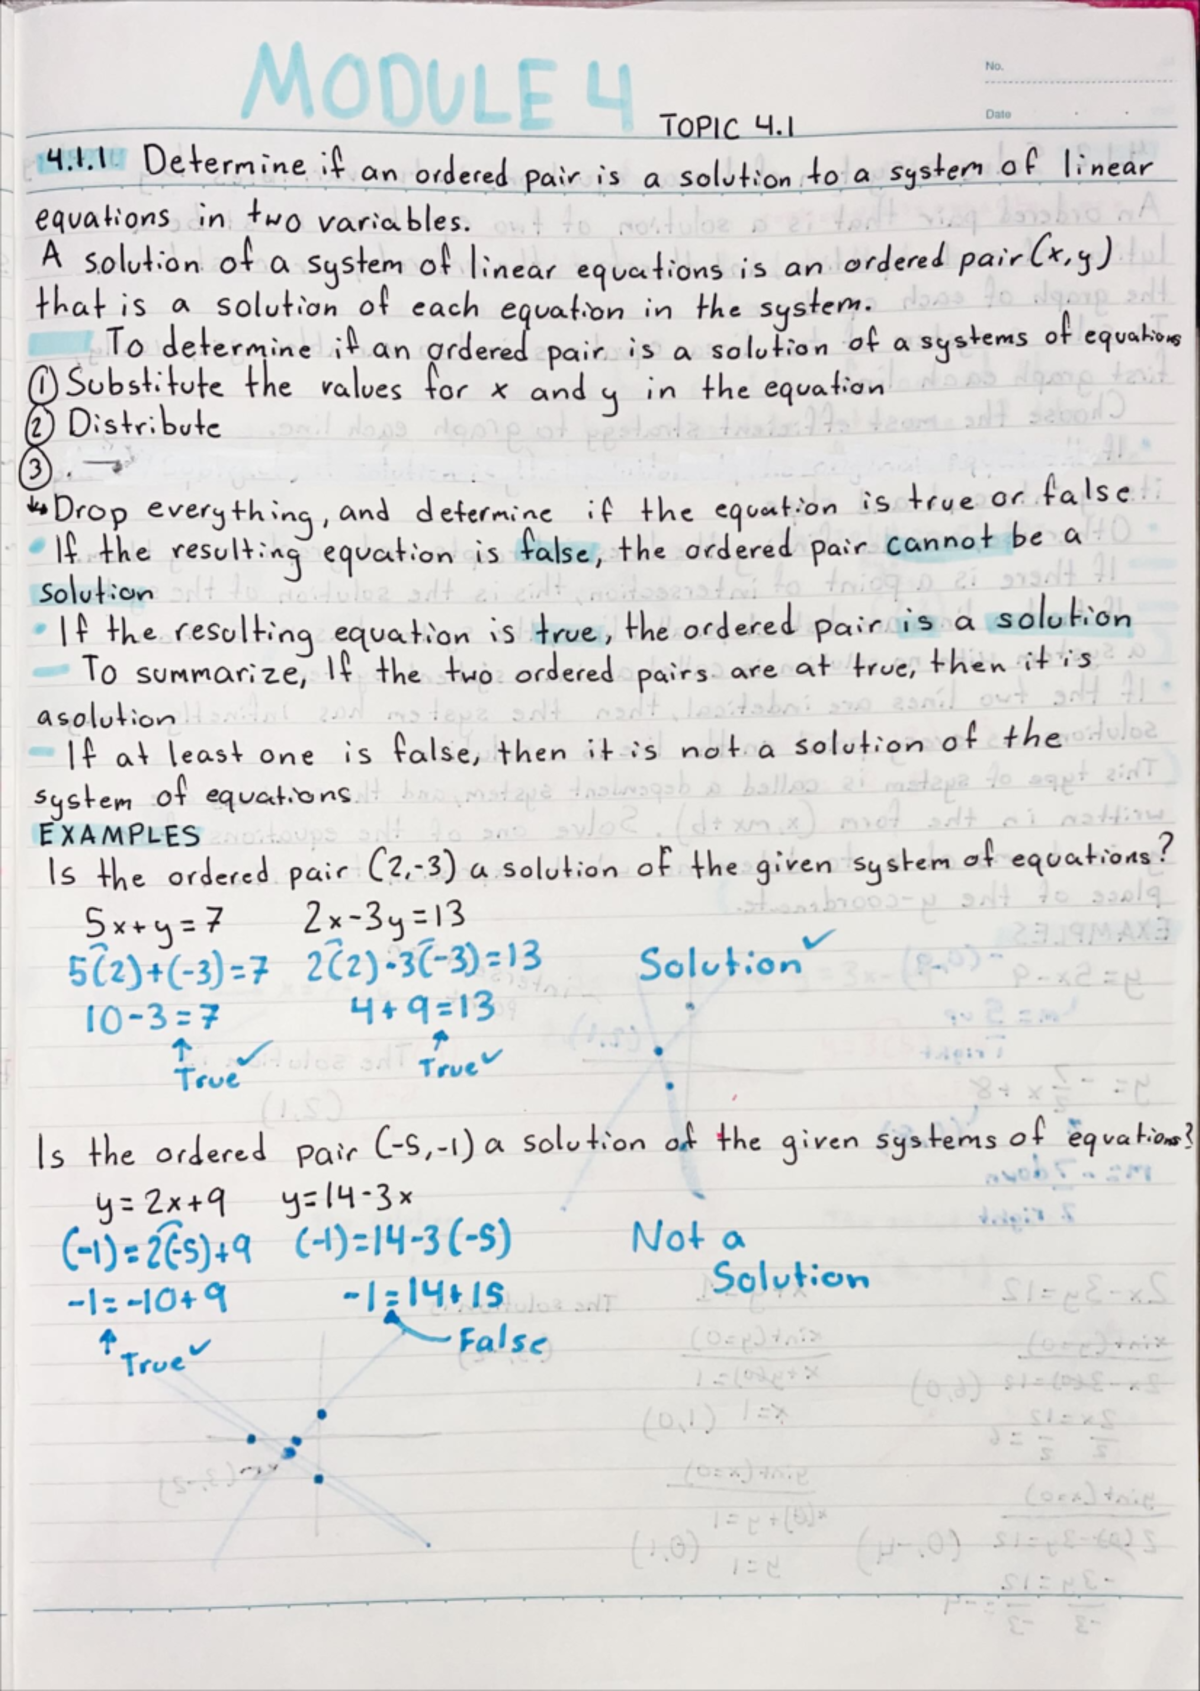 MODULE 4
No.
TOPIC 4.1
Date
4.1.1 Determine if an ordered pair is a solution to a system of linear
equations in two variables.
A solution of a system of linear equations is an ordered pair (x,y)
that is a solution of each equation in the system.
To determine if an ordered pair is a solution of a systems of equations
① Substitute the values for x and y in the equation
② Distribute
③ . →
↳ Drop everything, and determine if the equation is true or false
• If the resulting equation is false, the ordered pair cannot be a
solution
• If the resulting equation is true, the ordered pair is a solution
- To summarize, If the two ordered pairs are at true, then it is
asolution
- If at least one is false, then it is not a solution of the
system of equations
EXAMPLES
Is the ordered pair (2,-3) a solution of the given system of equations?
5x+y=7 2x-3y=13
5(2)+(-3)=7 2(2)-3(-3)=13 Solution ✓
10-3=7 4+9=13
↑ True ✓ ↑ True ✓
Is the ordered pair (-5,-1) a solution of the given systems of equations?
y=2x+9 y=14-3x
(-1)=2(-5)+9 (-1)=14-3(-5) Not a
Solution
-1=-10+9 -1=14+15
↑ True ✓ False